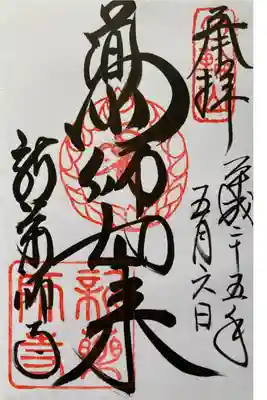 奉拝
平成二十五年
五月六日
薬師如来
新薬師寺
新薬
師寺